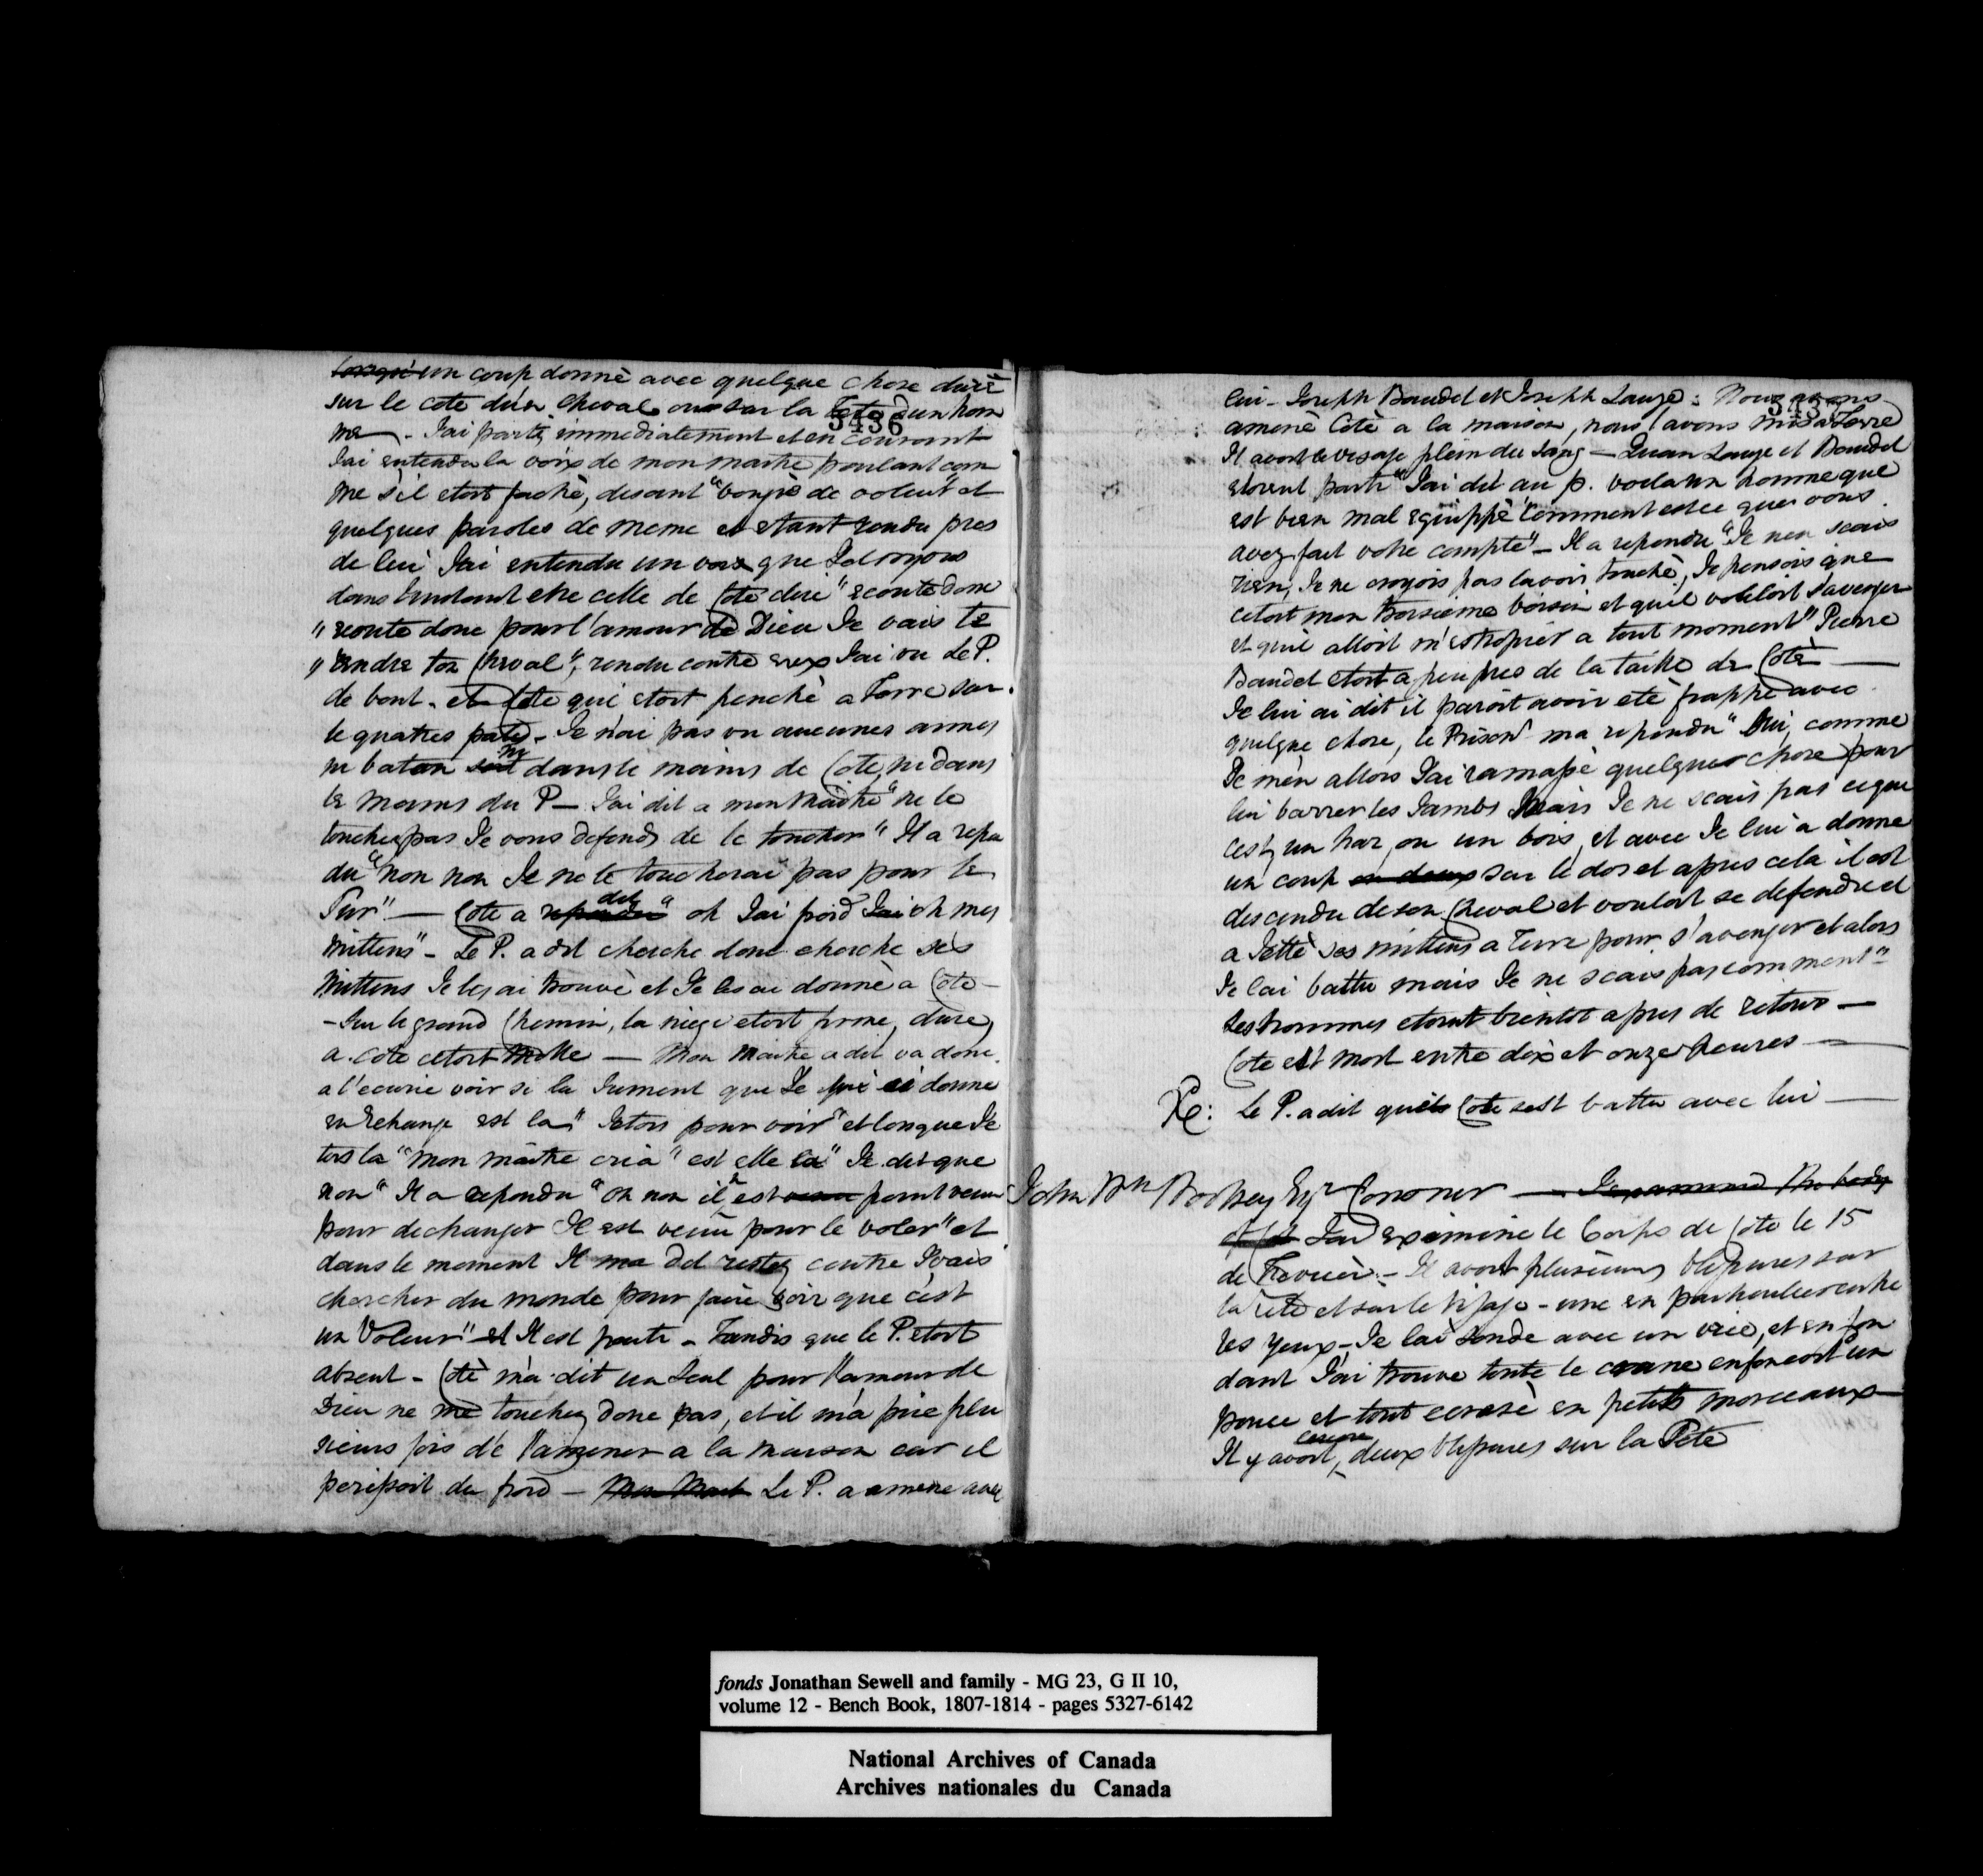 un coup donnè avec quelque chose dure
sur le cote d'un cheval ou sur la Tete d'un hom
5436
me - J'ai partis immediatement et en courant
J'ai entendu la voix de mon maitre parlant com
me s'il etoit fachè, disant "bougre de voleur" et
quelques paroles de meme et etant rendu pres
de lui J'ai entendu un voix que Je croyois
dans l'instant etre celle de Cotè dire "ecoute donc
" ecoute donc pour l'amour de Dieu Je vais te
" rendre ton Cheval", rendu contre eux J'ai vu Le P.
de bout - et Cote qui etoit penchè a Terre sur
le quatres pates - Je n'ai pas vu aucunes armes
ni baton ni dans le mains de Cote, ni dans
le mains du P - J'ai dit a mon maitre "ne le
touchez pas Je vous defends de le toucher" Il a repon
du "non non Je ne le toucherai pas pour le
Sur" - Cote a dit " oh J'ai froid oh mes
mittens" - Le P. a dit cherche donc cherche ses
mittens Je les ai trouvè et Je les ai donnè a Cote -
- Sur le grand Chemin, la niege etoit ferme, dure,
a cote cetoit molle - Mon Maitre a dit va donc
a l'ecurie voir si la Jument que Je lui ai donne
en Echange est la" Jetois pour voir et lorsque Je
tois la "mon maitre cria" est elle la" Je dit que
non" Il a repondu "oh non il n'est point venu
pour dechanger Il est venu pour le voler" et
dans le moment Il ma dit restez contre J'vais
chercher du monde pour faire voir que c'est
un Voleur" et Il est parti - Tandis que le P. etoit
absent - Cotè m'a dit un seul pour l'amour de
Dieu ne me touchez donc pas, et il m'a prie plu
sieurs fois de l'amener a la maison car il
perissoit du froid - Le P. a amene avec
lui - Joseph Baudet et Joseph Lauze: Nous avons
5437
amenè Cotè a la maison, nous l'avons mis a Terre
Il avoit le visage plein du sang - Quan Lauze et Baudet
etoient parti "J'ai dit au p. voila un homme que
est bien mal equippè "Comment est ce que vous
avez fait votre compte" - Il a repondu "Je n'en scais
rien, Je ne croyois pas lavoir touchè, Je pensois que
cetoit mon troisieme voisin et qu'il vouloit s'avenger
et qu'il alloit m'estropier a tout moment" Pierre
Baudet etoit a peu pres de la taille de Cotè -
Je lui ai dit il paroit avoir etè frappè avec
quelque chose, le Prisonr ma repondu "Oui, comme
Je m'en allois J'ai ramassè quelque chose pour
lui barrer les Jambs Mais Je ne scais pas ce que
c'est, un har, ou un bois, et avec Je lui a donne
un coup sur le dos et apres cela il est
descendu de son Cheval et vouloit se defendre et
a Jettè ses mittens a Terre pour s'avenger et alors
Je lai battu mais Je ne scais pas comment"
Les hommes etoient bientot apres de retour -
Cote est mort entre dix et onze heures -
Xe: Le P. a dit que Cote sest battu avec lui -
John Wm Woolsey Esqr Coroner -
J'ai examine le Corps de Cote le 15
de Fevrier - Il avoit plusieurs blessures sur
la Tete et sur le visage - une en particulier entre
les yeux - Je lai sonde avec un , et en son
dant J'ai trouve toute le crane enfoncoit un
pouce et tout ecrasè en petits morceaux -
Il y avoit, encore deux blessures sur la Tete
fonds Jonathan Sewell and family - MG 23, G II 10,
volume 12 - Bench Book, 1807-1814 - pages 5327-6142
National Archives of Canada
Archives nationales du Canada